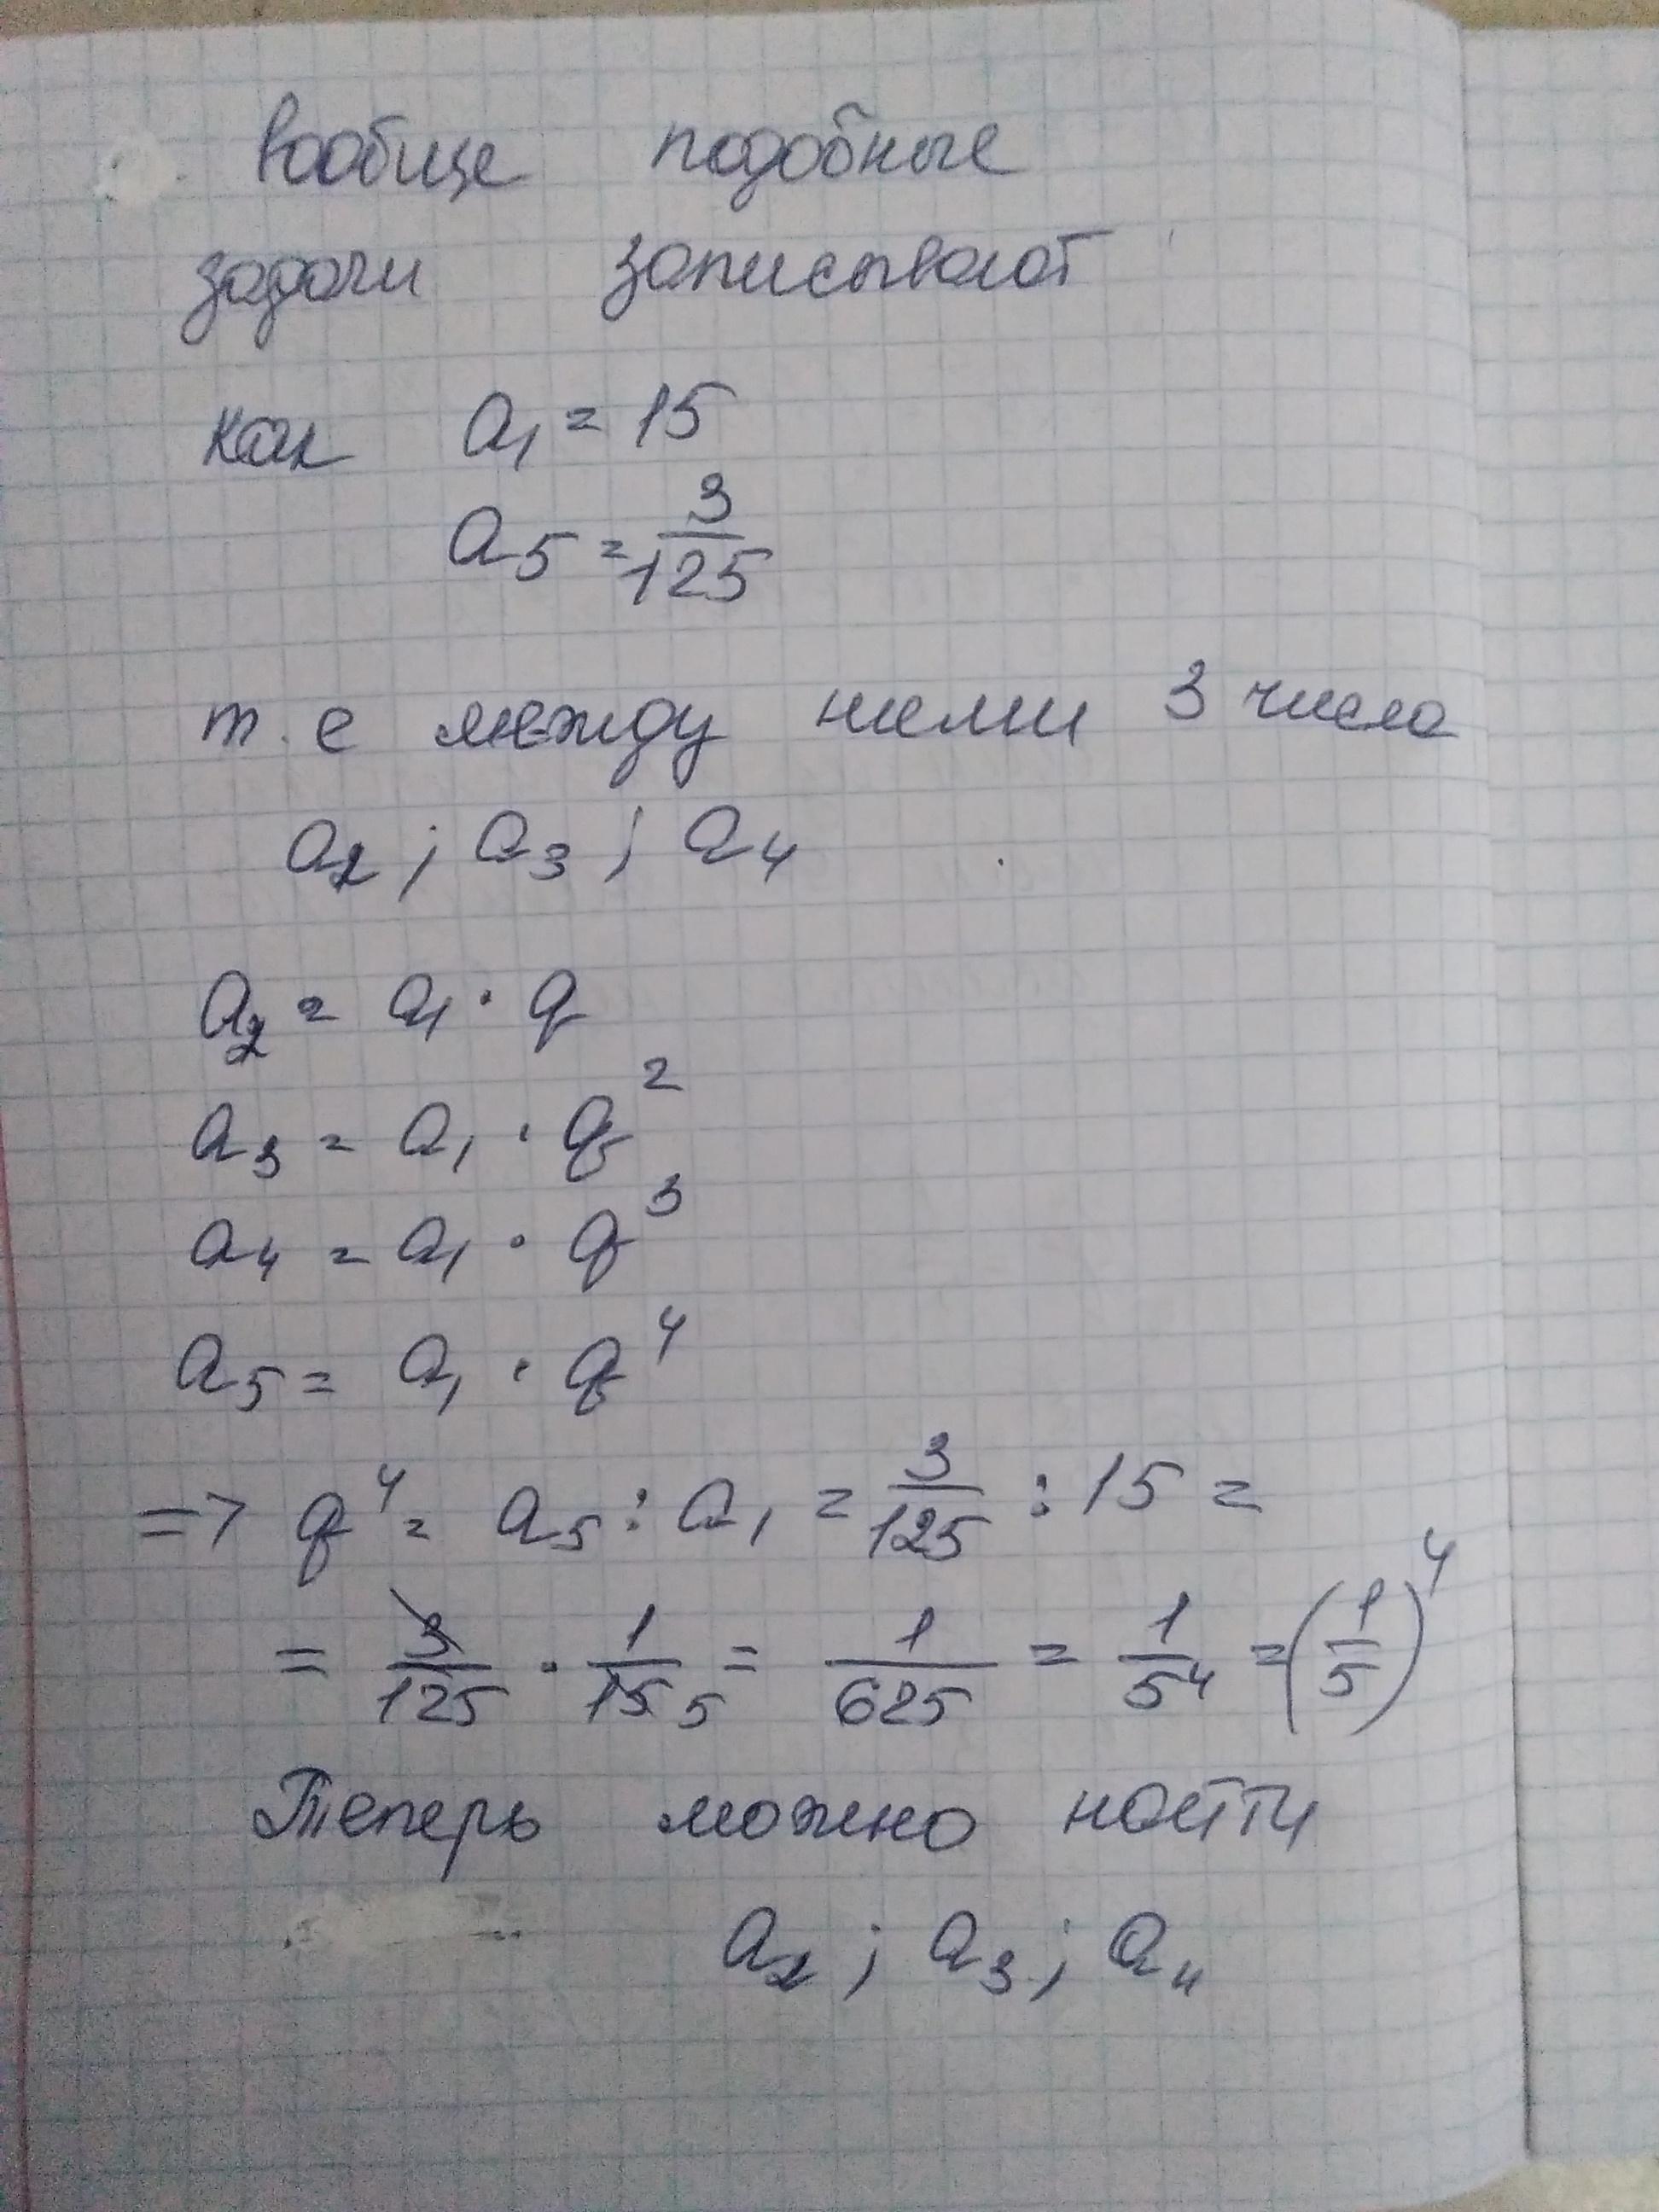 вообще подобные
задачи записывают
как a₁ = 15
a₅ = 3/125
т.е между ними 3 числа
a₂ ; a₃ ; a₄
a₂ = a₁ · q
a₃ = a₁ · q²
a₄ = a₁ · q³
a₅ = a₁ · q⁴
=> q⁴ = a₅ : a₁ = 3/125 : 15 =
= 3/125 · 1/15 5 = 1/625 = 1/5⁴ = (1/5)⁴
Теперь можно найти
a₂ ; a₃ ; a₄